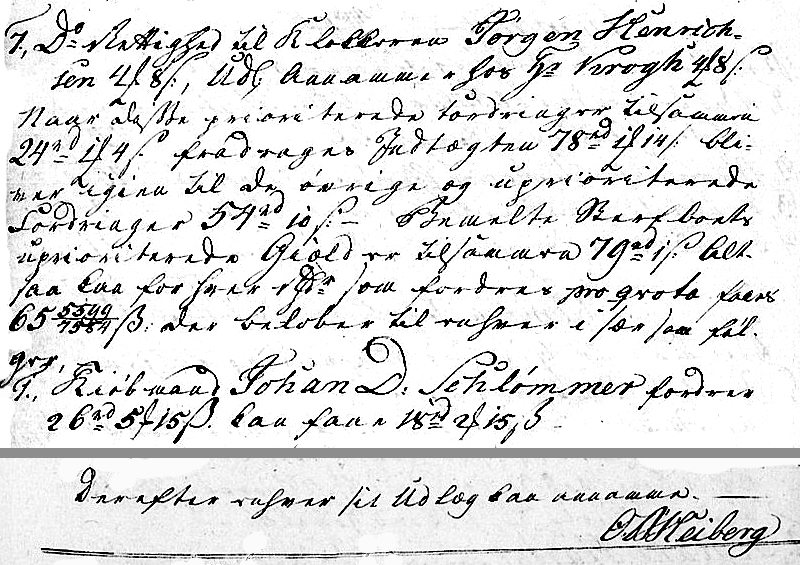 7., Do Rettighed til Klokkeren Jørgen Henrich-
sen 4 8 s:, Udl: Annammer hos Hr Krogh 4 8 s:
Naar disse prioriterede fordringer tilsammen
24 rd 1 4 s: fradrages Indtægten 78 rd 1 14 s: bli-
ver igien til de øvrige og upriorite­rede
Fordringer 54 rd 10 s: – Bemelte Sterfboets
upriorite­rede Giæld er tilsammen 79 rd 1 s: Alt-
saa kan for hver som fordres pro qvota faaes
65 5599/7584 ß: der beløber til enhver i sær som føl-
ger,
1., Kiøbmand Johan D: Schlømmer fordrer
26 rd 5 15 ß. kan faae 18 rd 2 15 ß
Derefter enhver sit Udlæg kan annamme. —
Heiberg